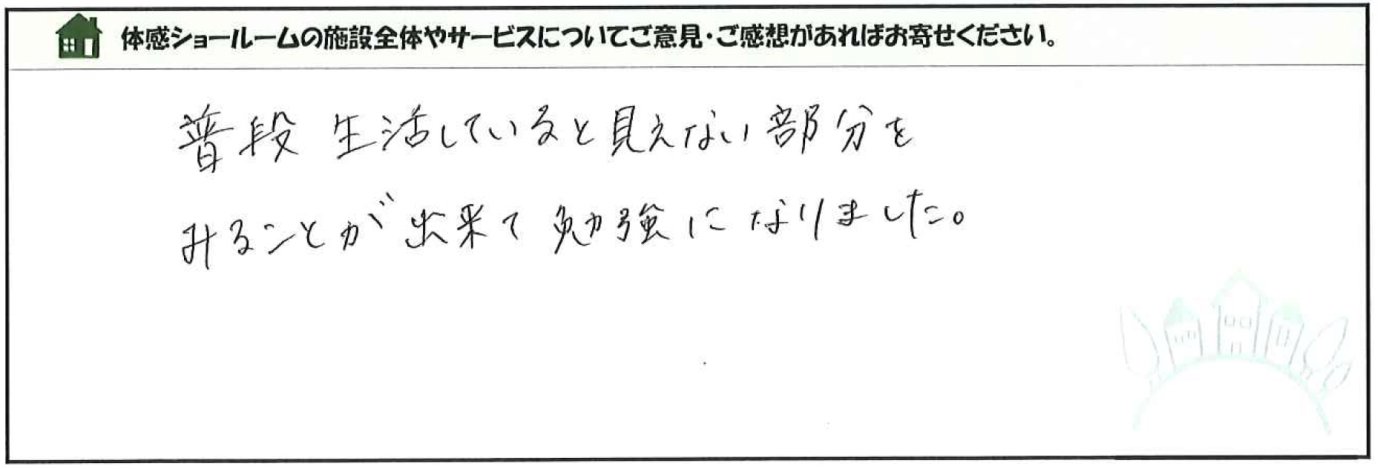 体感ショールームの施設全体やサービスについてご意見・ご感想があればお寄せください。
普段 生活していると見えない部分を
みることが出来て勉強になりました。